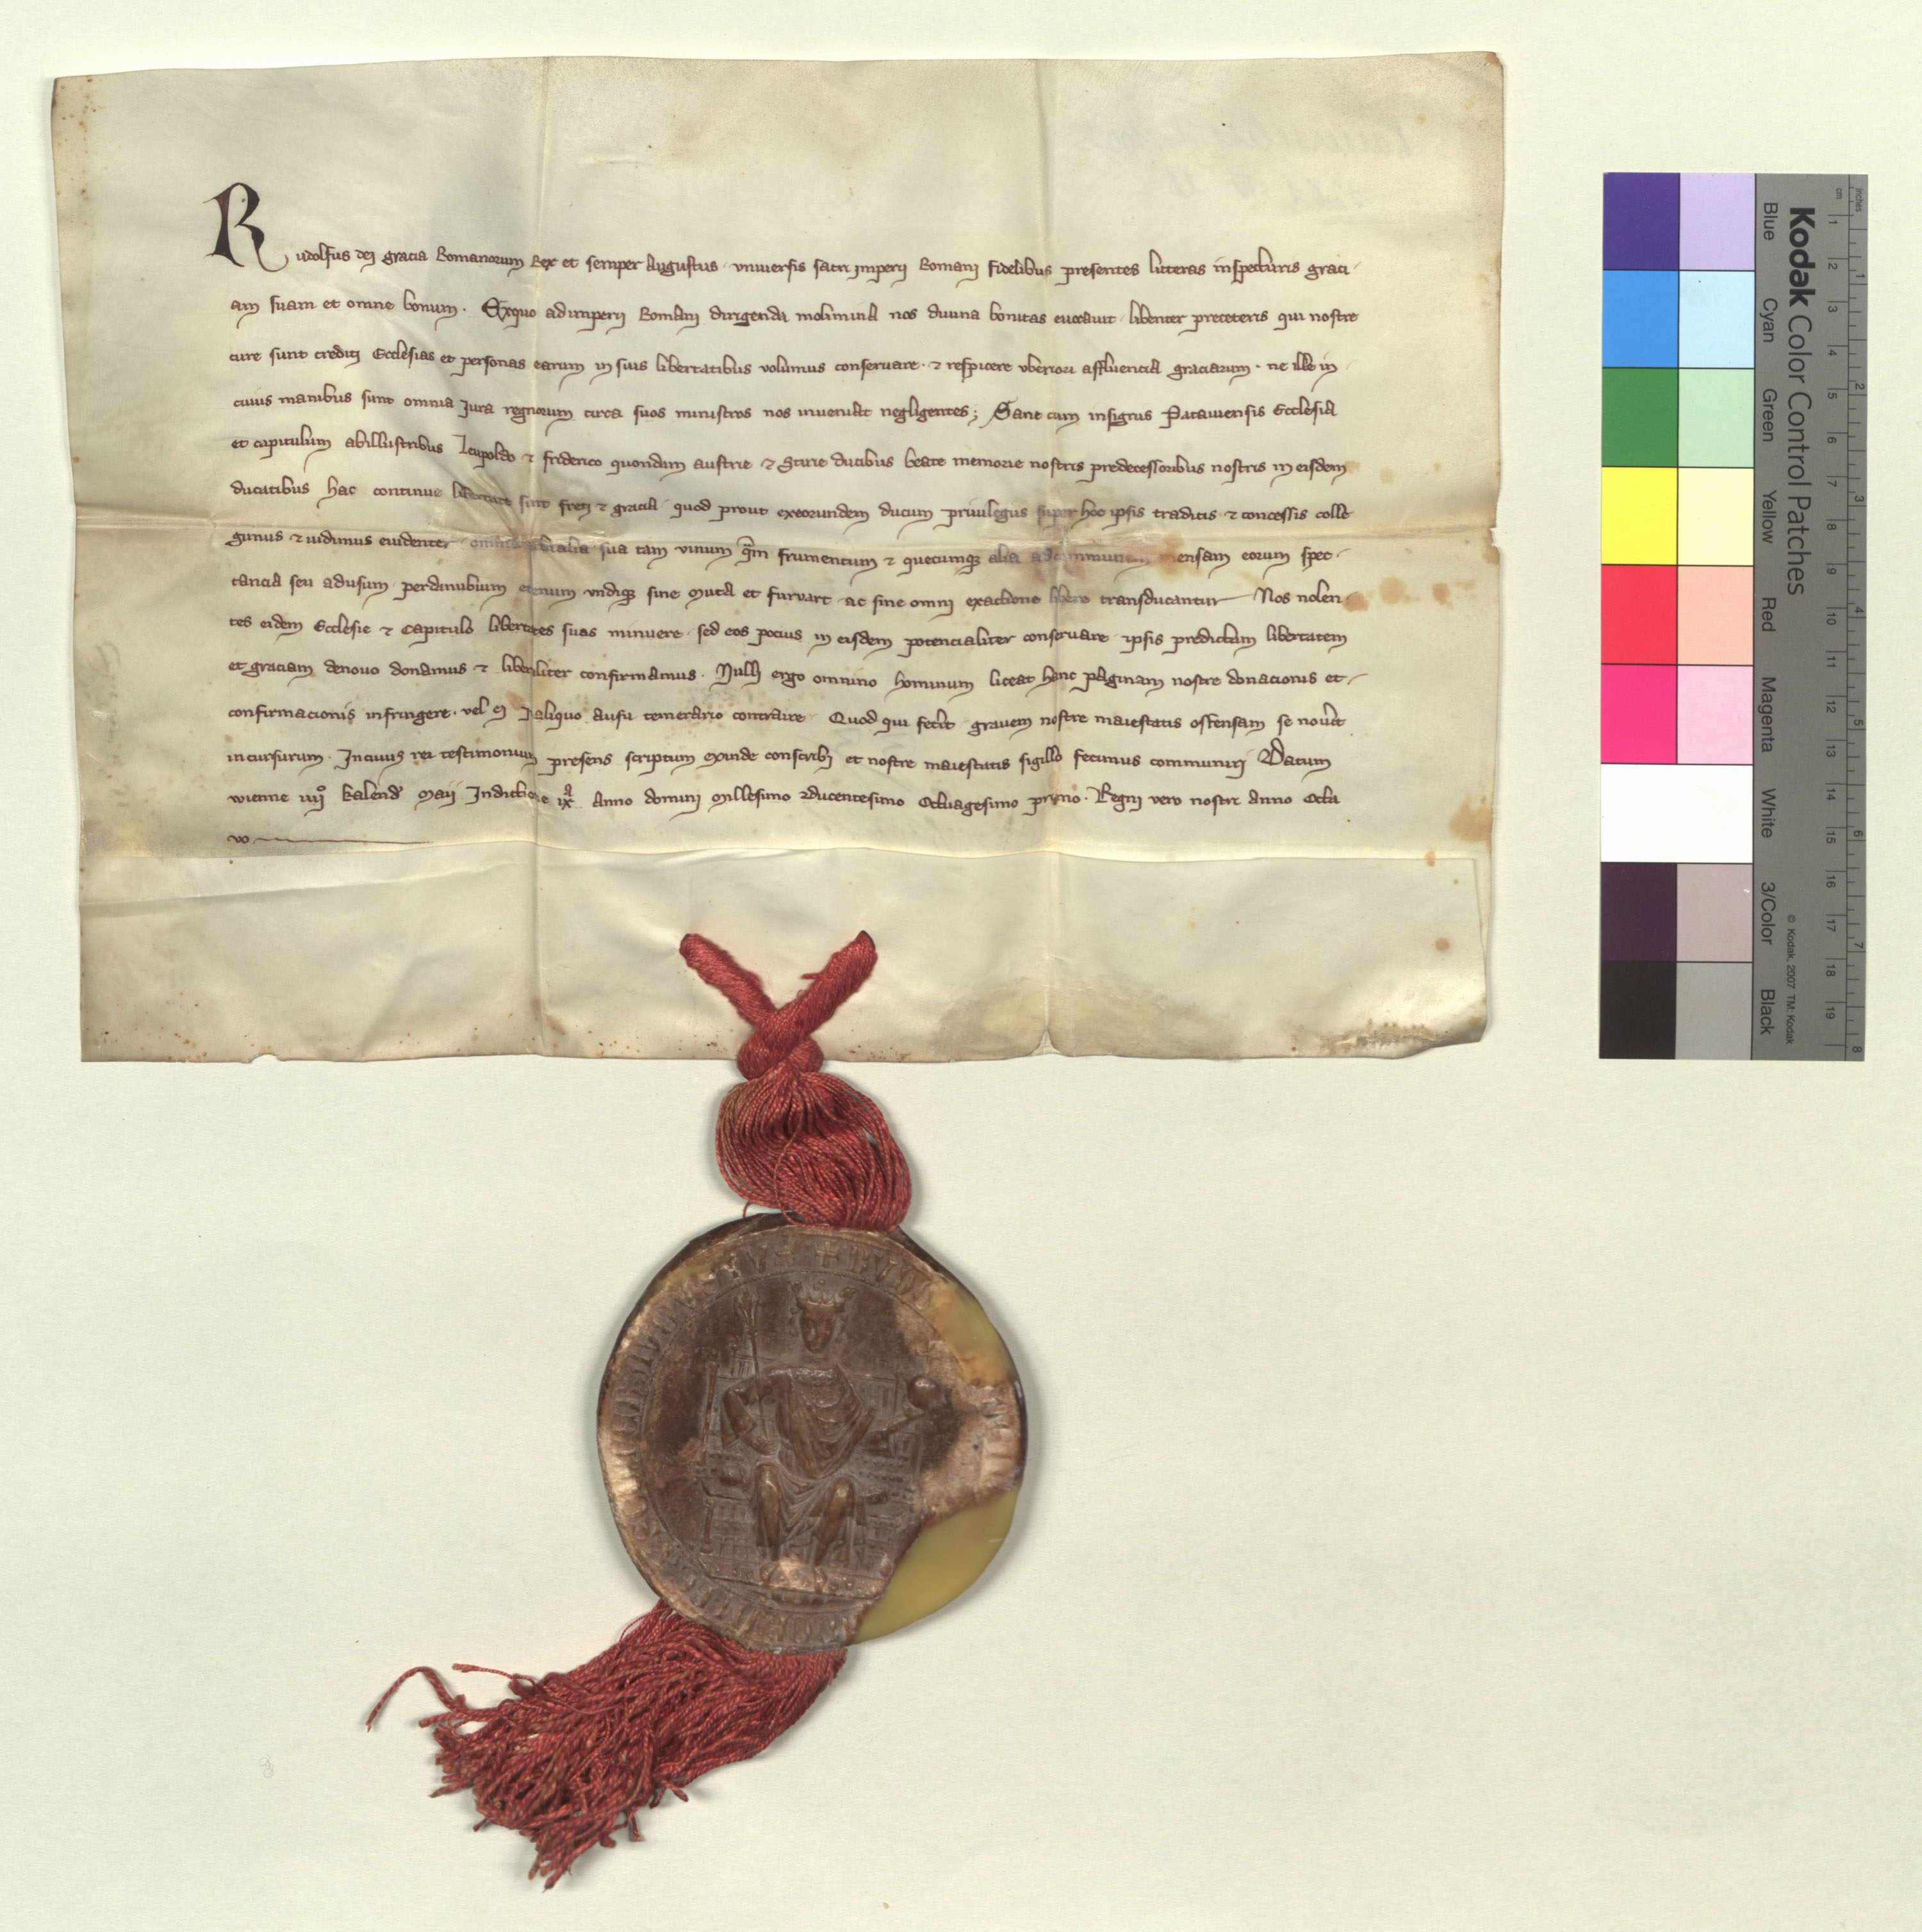 Rudolfus dei gracia Romanorum Rex et semper Augustus · vniuersis sacri jmperii Romani fidelibus presentes litteras inspecturis graci
am suam et omne bonum · Exquo adimperii Romani dirigenda molimina nos diuina bonitas euocauit · libenter preceteris qui nostre
cure sunt crediti Ecclesias et personas earum in suis libertatibus volumus conseruare · ⁊ respicere vberiori affluencia graciarum · ne ille in
cuius manibus sunt omnia Jura regnorum circa suos ministros nos inueniat negligentes ; Sane cum insignis Patauiensis Ecclesia
et capitulum abillustribus Leupoldo ⁊ friderico quondam austrie ⁊ Stirie ducibus beate memorie nostris predecessoribus nostris in eisdem
ducatibus hac continue libertate sint freti ⁊ gracia · quod prout exeorundem ducum priuilegiis super hoc ipsis traditis ⁊ concessis colle
gimus ⁊ uidimus euidenter · omnia sua tam vinum qm̄ frumentum ⁊ quecumqꝫ alia adcommunem mensam eorum spec
tancia seu adusum · perdanubium undiqꝫ sine Muta et furvart ac sine omni exactione libere transducantur Nos nolen
tes eidem Ecclesie ⁊ Capitulo libertates suas minuere · sed eos pocius in eisdem potencialiter conseruare · ipsis predictam libertatem
et graciam denouo donamus ⁊ liberaliter confirmamus · Nulli ergo omnino hominum liceat hanc paginam nostre donacionis et
confirmacionis infringere · vel ei Jnaliquo ausu temerario contraire · Quod qui fecerit grauem nostre maiestatis offensam se nouerit
incursurum · Jncuius rei testimonium presens scriptum exinde conscribi et nostre maiestatis sigillo fecimus communiri Datum
wienne iiijo kalend Maii Jndictione ixa Anno domini Millesimo Ducentesimo Octuagesimo primo · Regni vero nostri anno Octa
uo
Kodak Color Control Patches
© Kodak, 2007 TM: Kodak
Blue Cyan Green Yellow Red Magenta White 3/Color Black
inches 1 2 3 4 5 6 7 8
cm 1 2 3 4 5 6 7 8 9 10 11 12 13 14 15 16 17 18 19